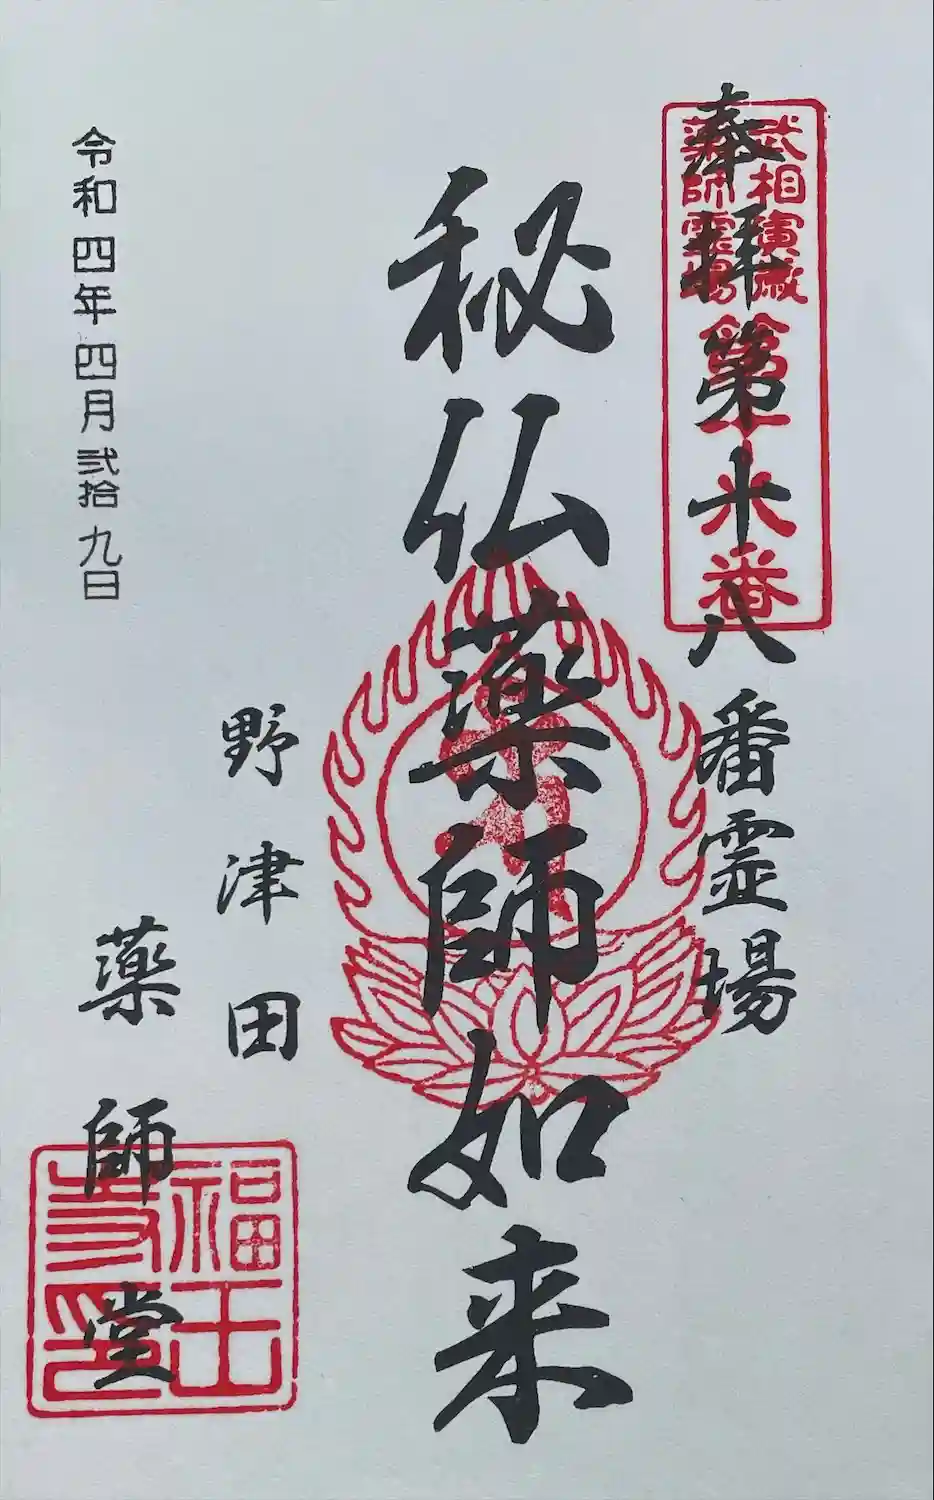 武相寅歳
薬師霊場
第十八番
奉拝第十八番霊場
秘仏薬師如来
野津田
薬師堂
福王
寺印
令和四年四月弐拾九日